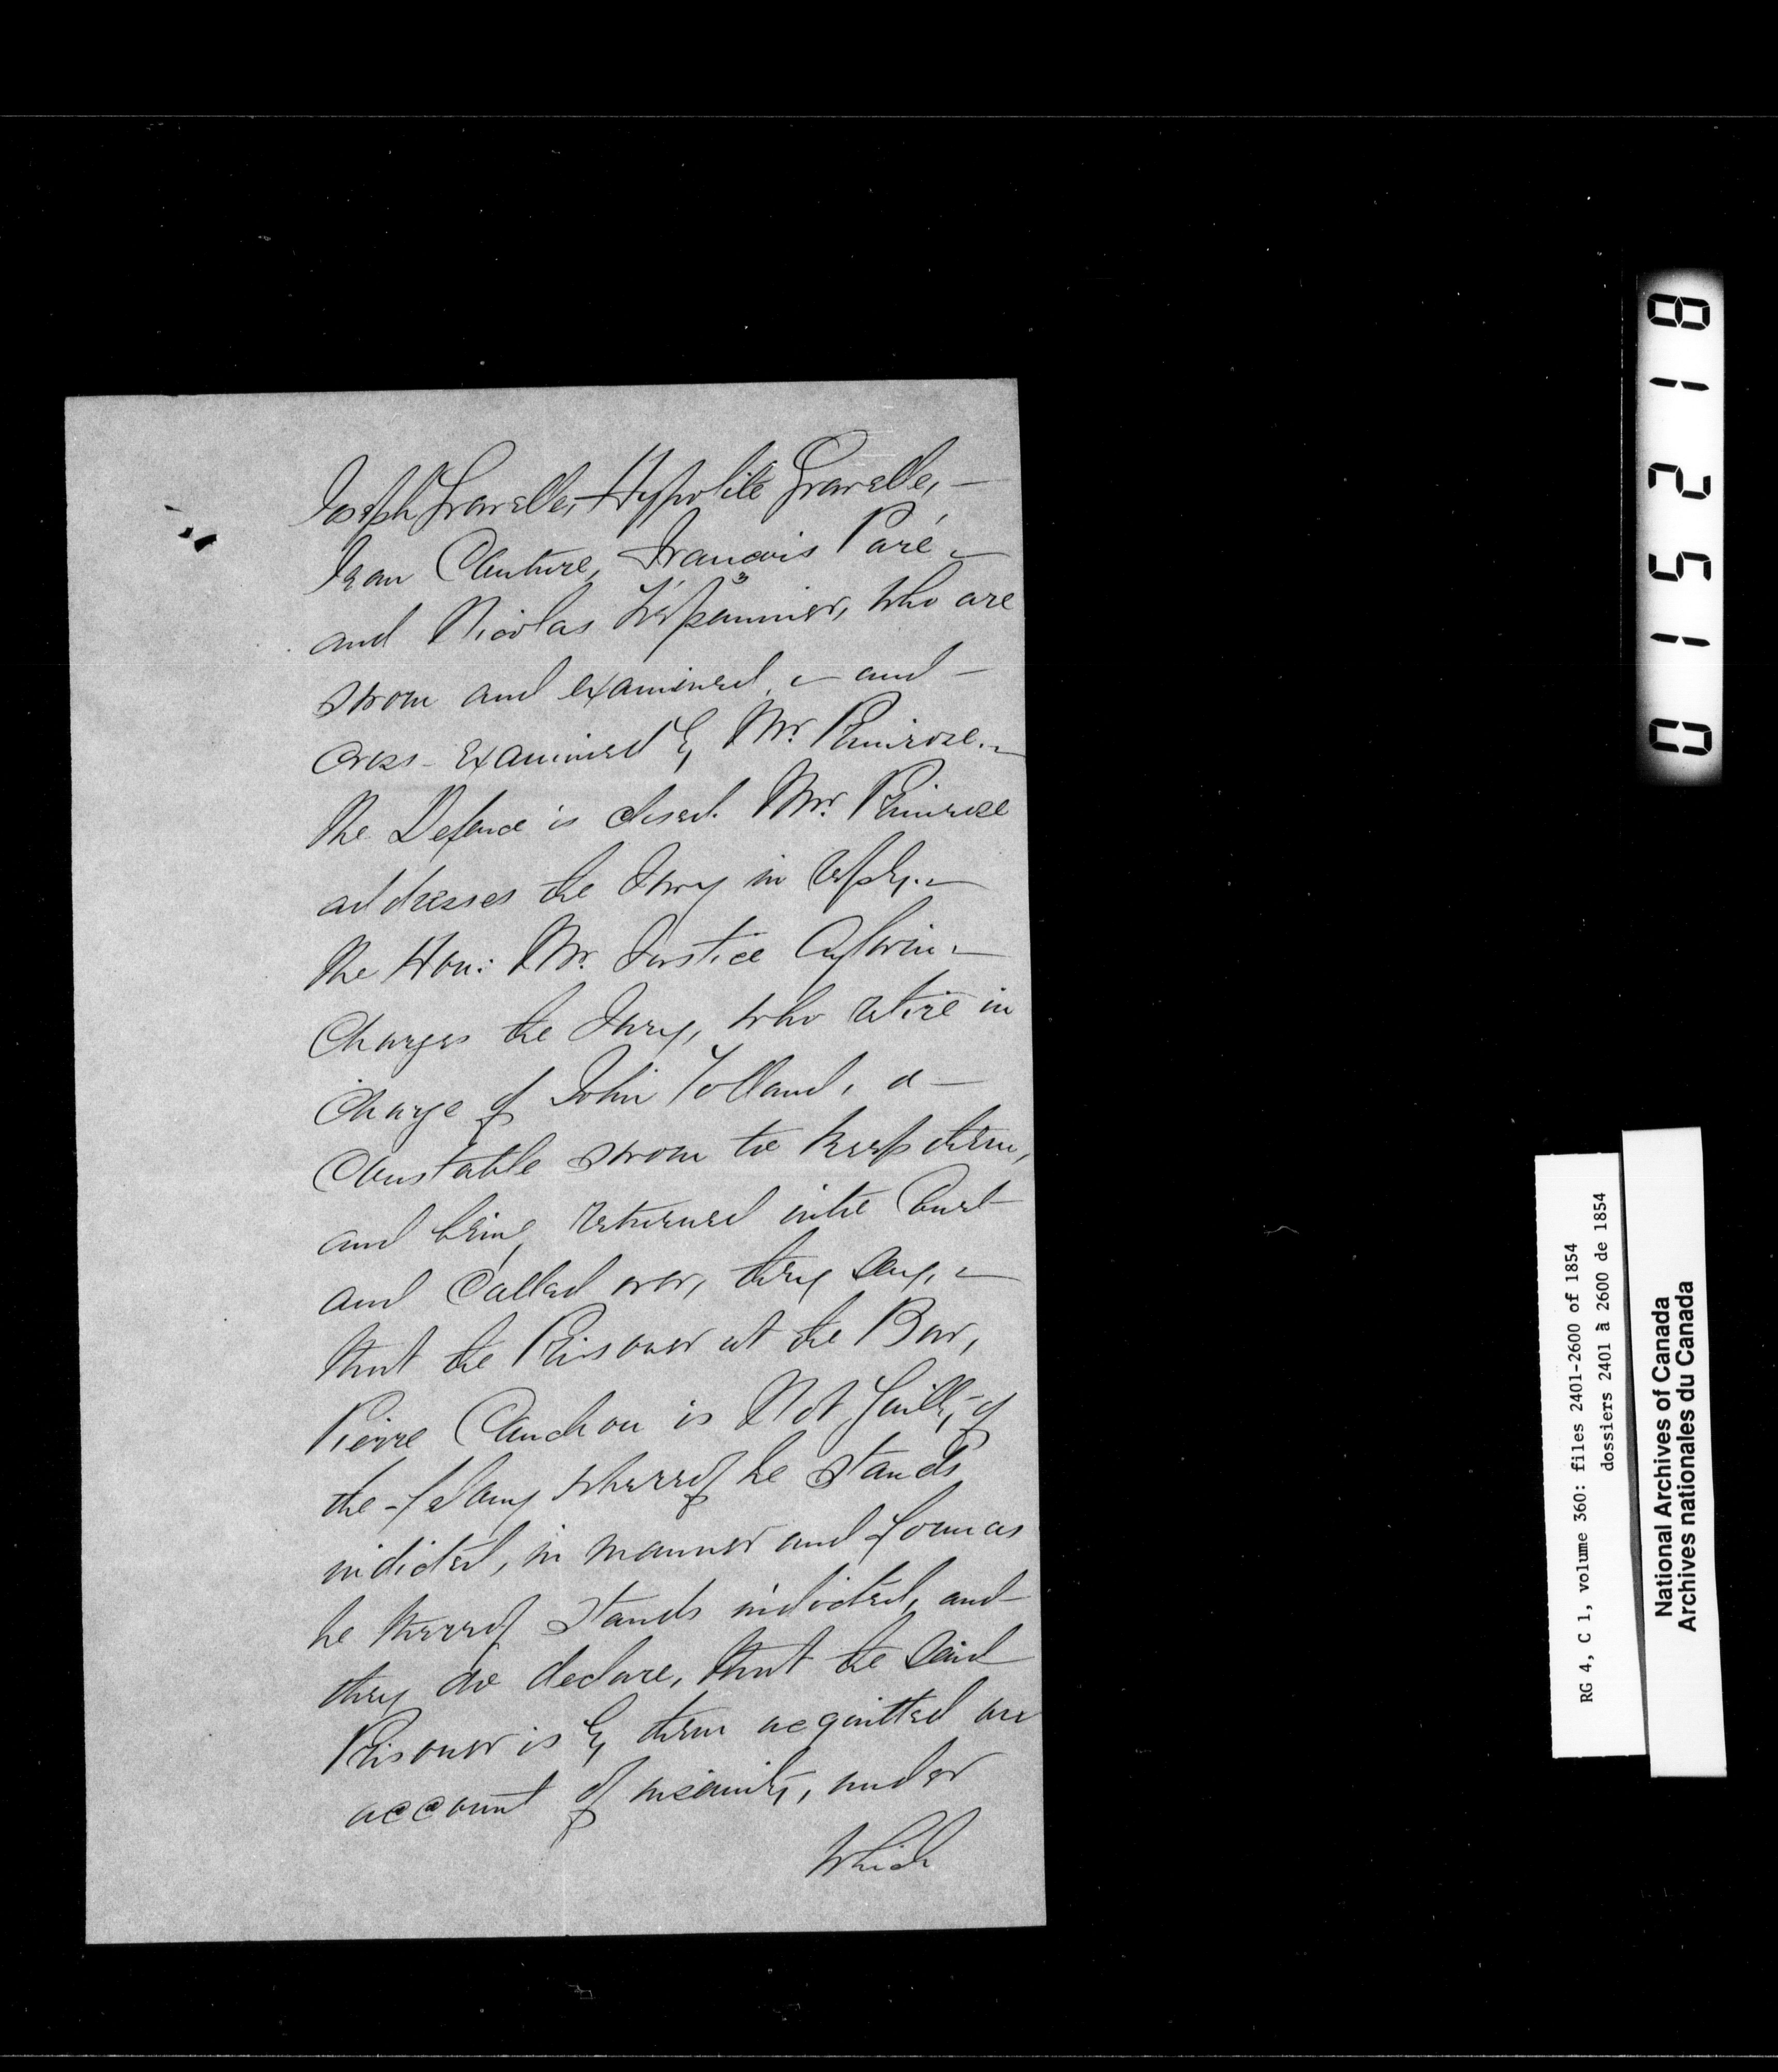 Joseph Gravelle, Hypolite Gravelle, —
Jean Couture, François Paré —
and Nicolas Trépannier, who are
sworn and examined, — and —
cross-examined by Mr. Primrose. —
The Defence is closed. Mr. Primrose
addresses the Jury in reply. —
The Hon: Mr. Justice Aylwin —
Charges the Jury, who retire in
charge of John Tolland, a —
Constable sworn to keep them,
and being returned into Court
and called over, they say, —
that the Prisoner at the Bar,
Pierre Cauchon is Not Guilty of
the felony whereof he stands
indicted, in manner and form as
he thereof stands indicted, and
they do declare, that the said
Prisoner is by them acquitted on
account of insanity, under
which
015218
RG 4, C 1, volume 360: files 2401-2600 of 1854
dossiers 2401 à 2600 de 1854
National Archives of Canada
Archives nationales du Canada